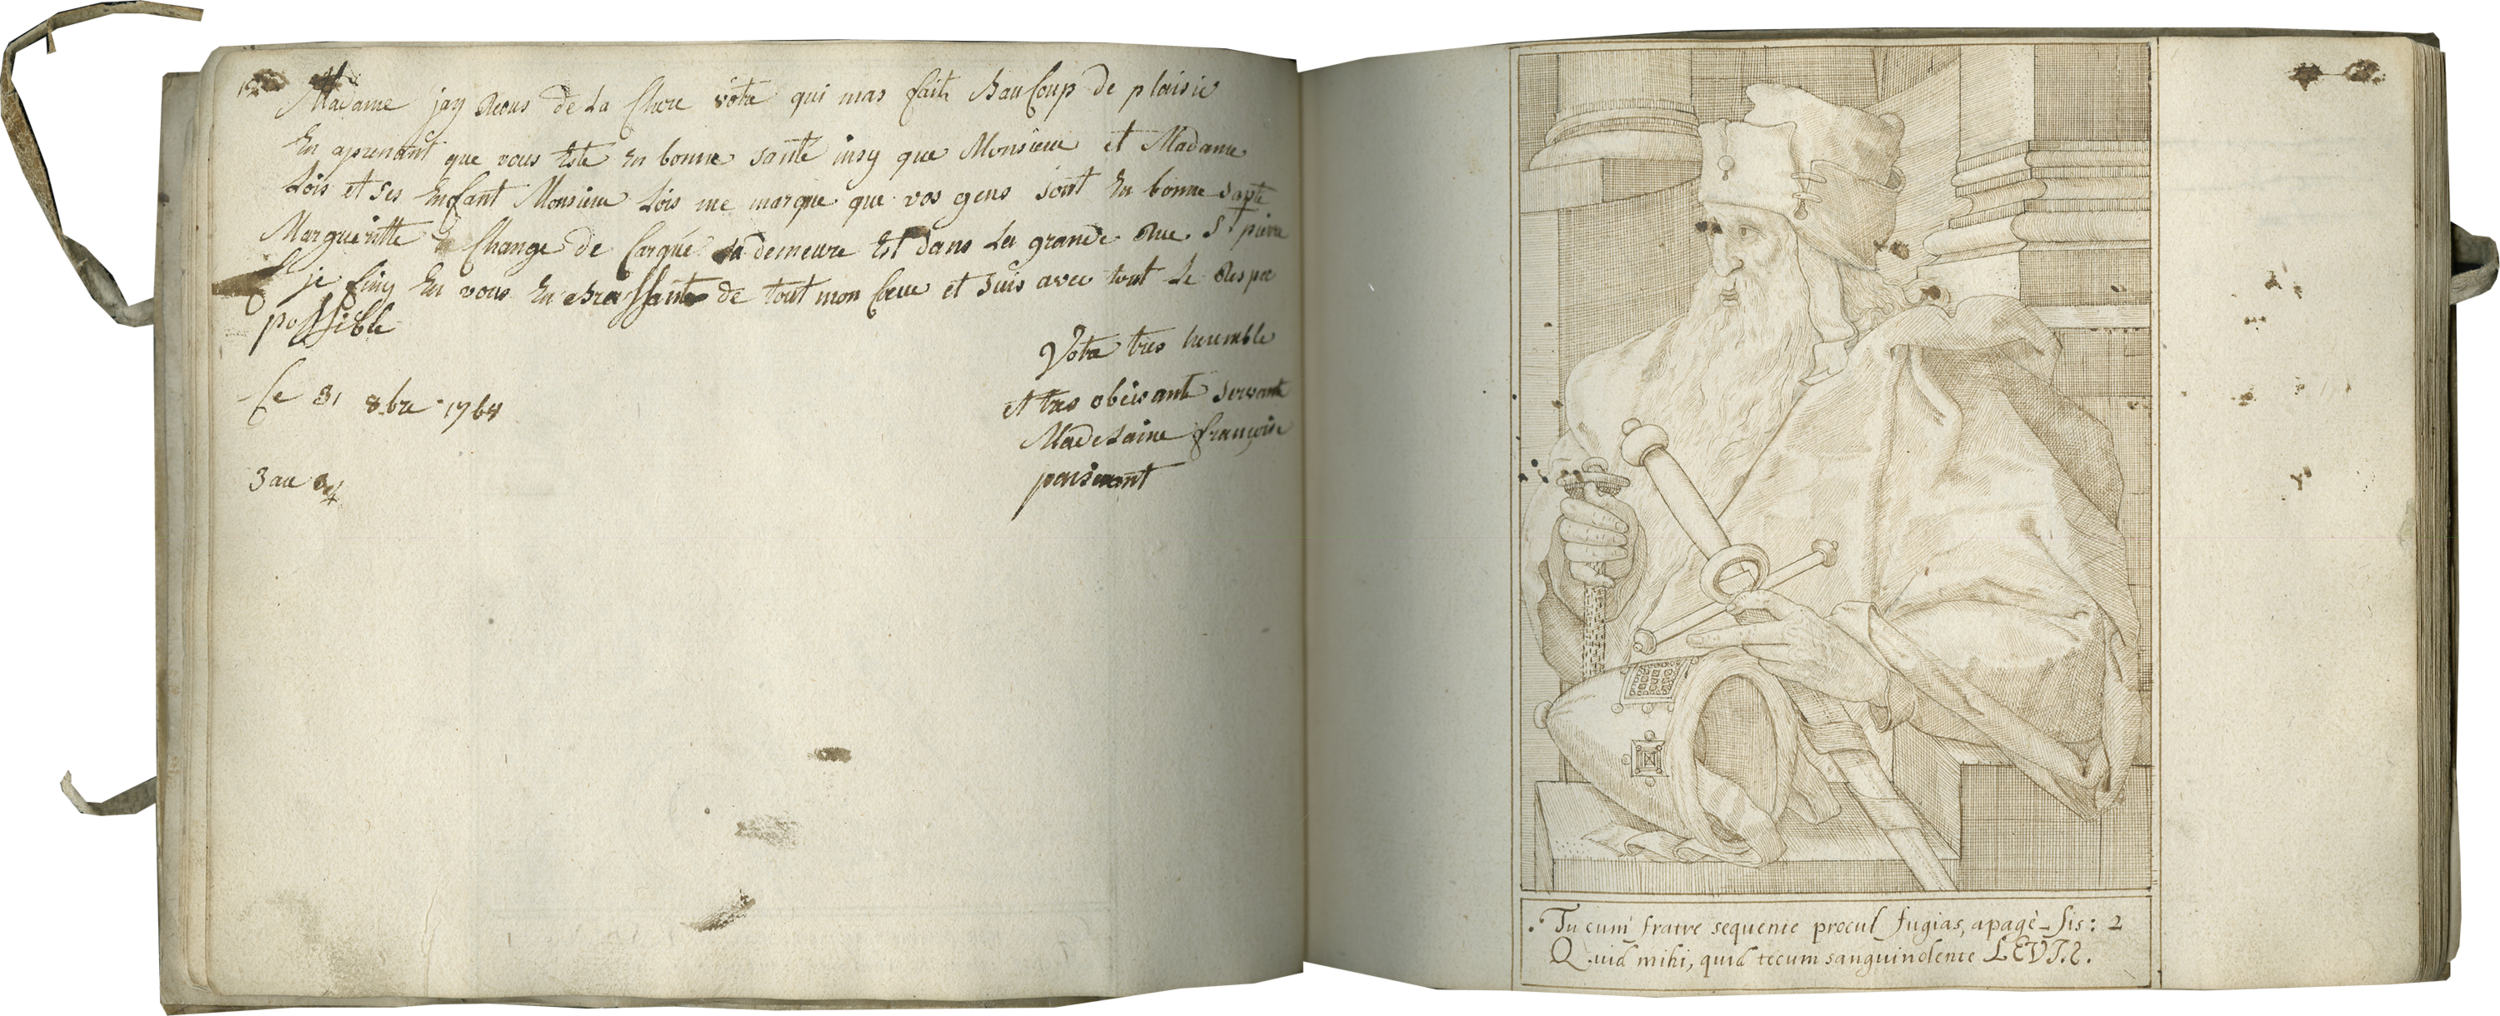 Madame jay Recus de La Chere votre qui mas fait BauCoup de plaisir
En aprenant que vous Ete En bonne santé insy que Monsieur et Madame
Lois et ses Enfant Monsieur Lois me marque que vos gens sont En bonne santé
Margueritte Change de Carque sa demeure Est dans La grande Rue St pierre
je finy En vous En Brassante de tout mon Cœur et suis avec tout Le Respec
possible
Votre tres heumble
Ce 31 8.bre 1768
et tres obeisante servante
Madelaine françoise
3 au
Tu cum fratre sequente procul fugias, apagè sis: 2
Quid mihi, quid tecum sanguinolente LEVI.2.